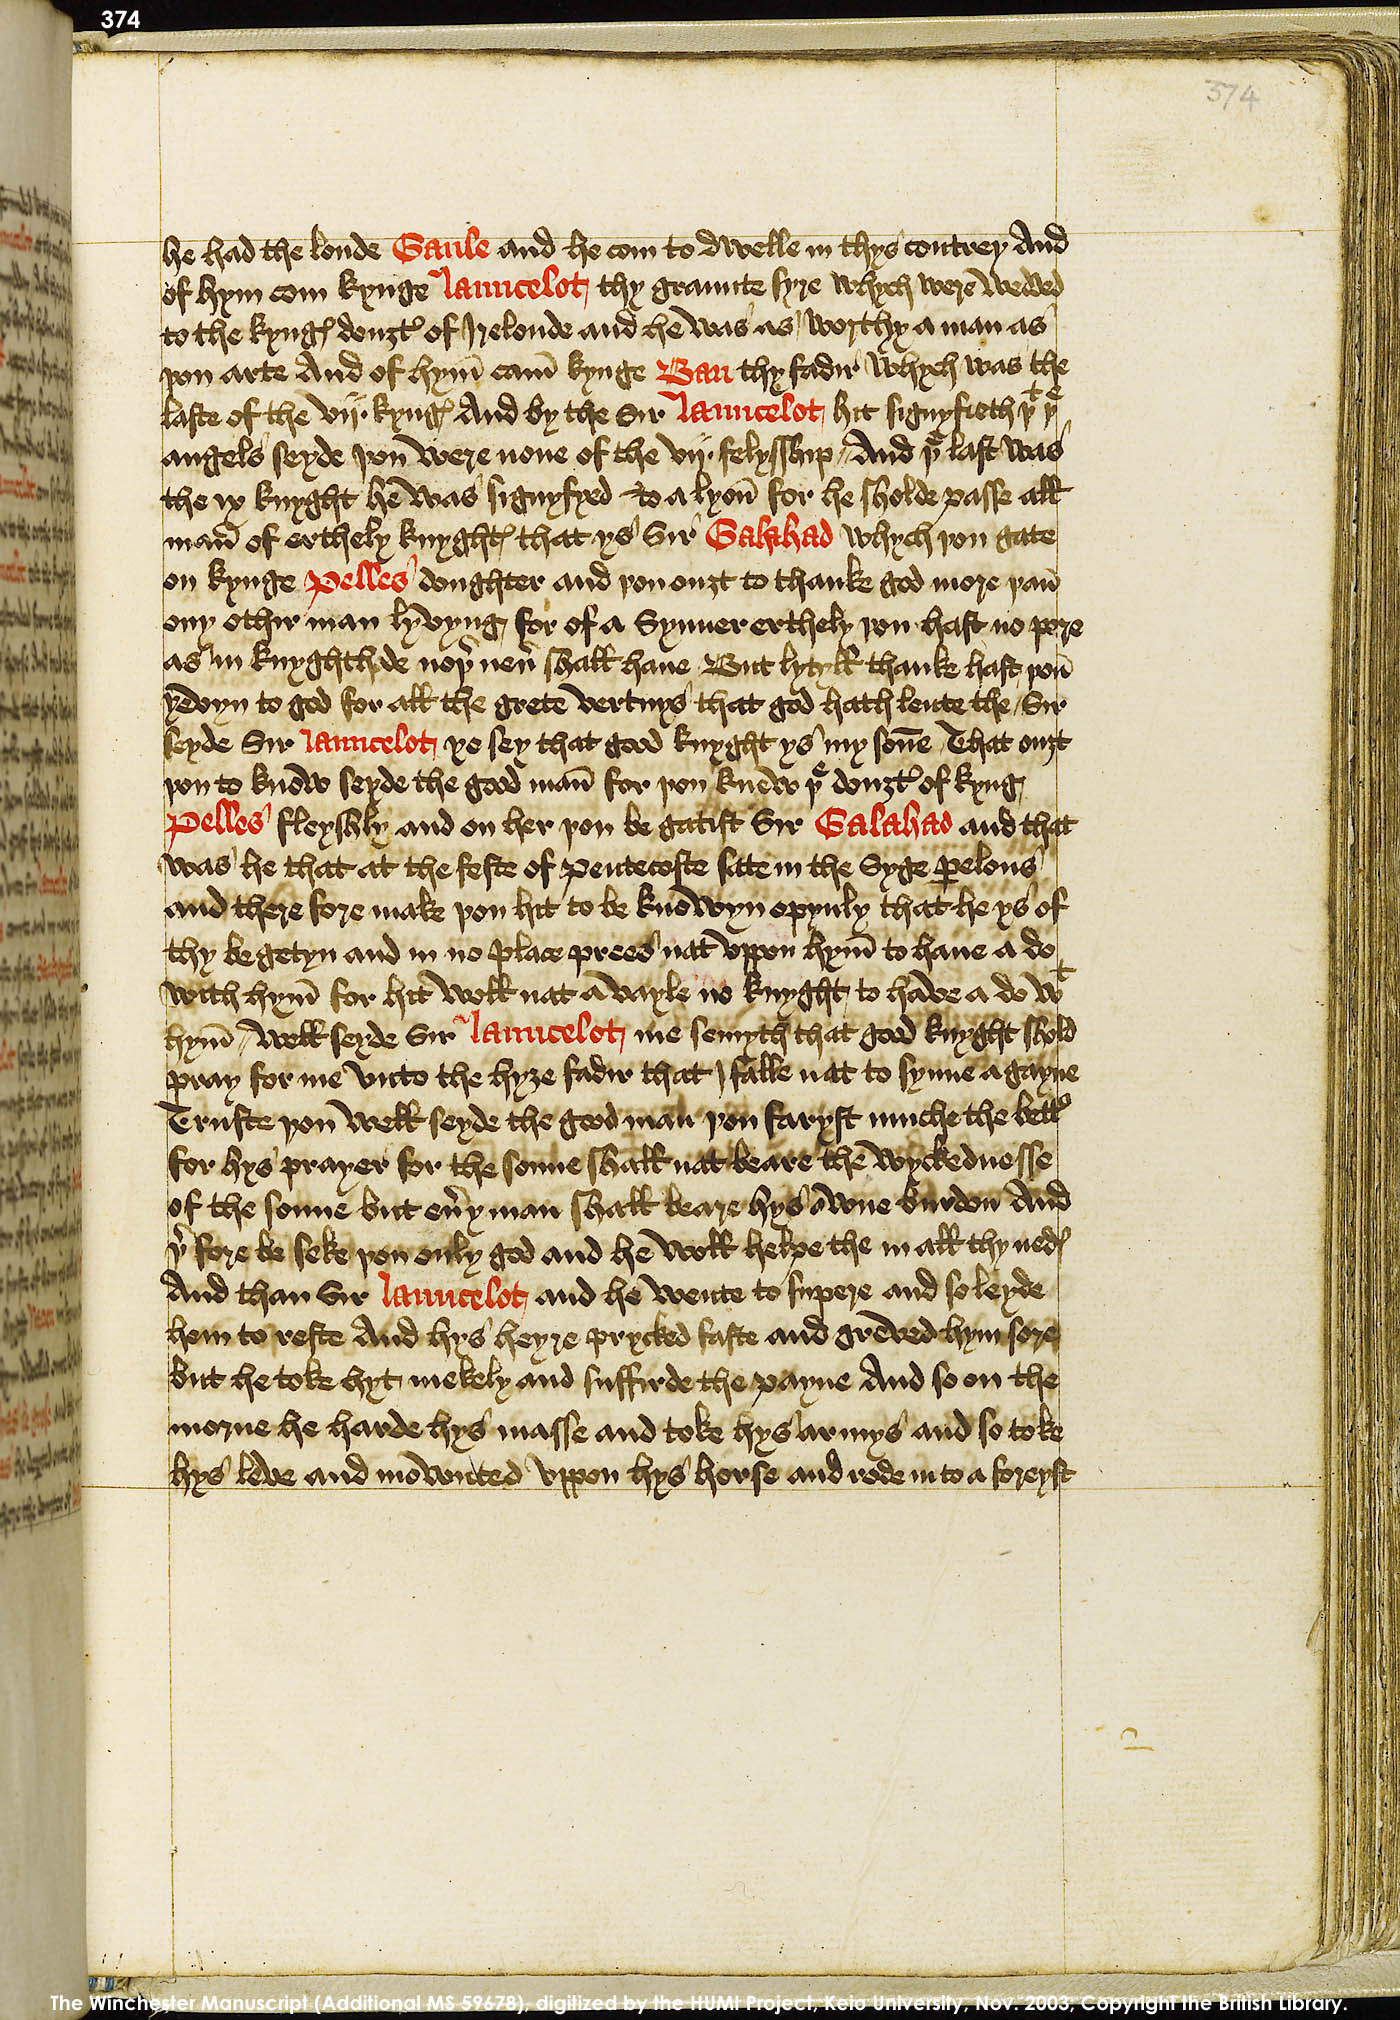 374
374
he had the londe Gaule and he com to dwelle in thys contrey And
of hym com kynge Launcelot thy graunte syre whych were wedded
to the kyngꝭ douȝtꝭ of Irelonde and he was as worthy a man as
þou arte And of hym̄ cam̄ kynge Ban thy fadir whych was the
laste of the vij. kyngꝭ And by the Sir Launcelot hit signyfieth þᵗ þᵉ
angels seyde þou were none of the vij. felysship // And þᵉ last was
the ix knyght he was signyfyed to a lyon̄ for he sholde passe all
man̄ of erthely knyghtꝭ that ys Sir Galahad whych þou gate
on kynge Pelles doughter and þou ouȝt to thanke god more þan̄
ony othir man lyvyng for of a Synner erthely þou hast no pere
as in knyghthode noþ̉ neủ shall haue But lytyll thanke hast þou
yevyn to god for all the grete vertuys that god hath lente the / Sir
seyde Sir Launcelot ye sey that good knyght ys my son̄e That ouȝt
þou to know seyde the good man̄ for þou knew þᵉ douȝtꝭ of kyng
Pelles fleyshly and on her þou be gatist Sir Galahad and that
was he that at the feste of Pentecoste sitte in the Syge ꝑelous
and there fore make þou hit to be knowyn opynly that he ys of
thy be getyn and in no place prees nat vppon hym̄ to haue a do
with hym̄ for hit woll nat avayle no knyght to have a do wᵗ
hym̄ // well seyde Sir Launcelot me semyth that good knyght shold
pray for me vnto the hyȝe fadir that I falle nat to synne a gayne
Truste þou well seyde the good man þou faryst muche the bettꝭ
for hys prayer for the sonne shall nat beare the wyckednesse
of the sonne but eủy man shall beare hys awne burdon And
þ̉ fore be seke þou only god and he woll helpe the in all thy nedꝭ
And than Sir Launcelot and he wente to supere and so leyde
hem to reste And hys heyre prycked faste and greved hym sore
but he toke hyt mekely and suffirde the payne And so on the
morne he harde hys masse and toke hys armys and so toke
hys leve and mownted vppon hys horse and rode in to a foreyst
The Winchester Manuscript (Additional MS 59678), digitized by the HUMI Project, Keio University, Nov. 2003, Copyright the British Library.